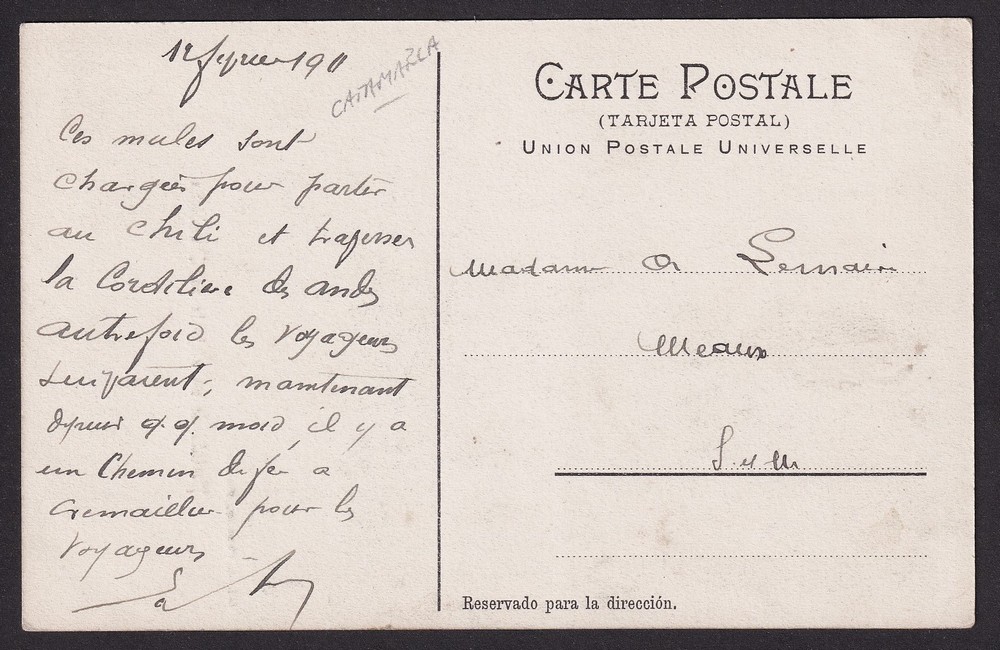 12 fevrier 1911
CATAMARCA
Ces mules sont
chargées pour partir
au Chili et traverser
la Cordiliere des andes
autrefois les voyageurs
suivaient, maintenant
depuis q.q. mois, il y a
un Chemin de fer a
Cremailler pour les
voyageurs
CARTE POSTALE
(TARJETA POSTAL)
UNION POSTALE UNIVERSELLE
Madame A Lemaire
Meaux
S et M
Reservado para la dirección.